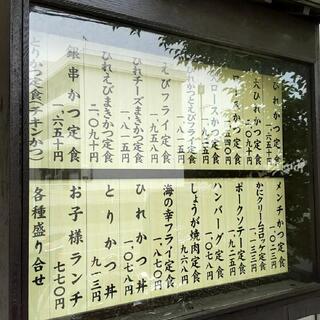 ひれかつ定食
一、六五十円
大ひれかつ定食
二〇九十円
ロースかつ定食
ひれかつとえびフライ定食
えびフライ定食
一、九五八円
ひれチーズまきかつ定食
一、八一五円
ひれえびまきかつ定食
二〇九十円
銀串かつ定食
一、六五十円
とりかつ定食(チキンかつ)
メンチかつ定食
一、〇二三円
かにクリームコロッケ定食
一、一三三円
ポークソテー定食
一、九二五円
ハンバーグ定食
一、〇七八円
しょうが焼肉定食
一、九六八円
海の幸フライ定食
一、八七〇円
ひれかつ丼
一、〇七八円
とりかつ丼
九一三円
お子様ランチ
七七〇円
各種盛り合せ